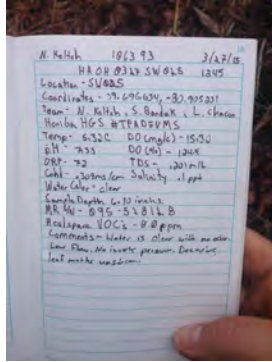 N. Keltoh 106393 3/27/13
HAOH 0327 SW065 1245
Location - SW065
Coordinates - 39.696634, -80.905331
Team - N. Keltoh, S. Bondak, L. Chacon
Horiba HGS #
Temp - 5.32C DO (mg/L) - 15.30
pH - 7.35 DO (%) - 124.8
ORP - 72 TDS - .201
Cond - .309 ms/cm Salinity .1 ppt
Water Color - clear
Sample Depth 6-10 inches
MR SN - 095-521818
Headspace VOC's - 0.0 ppm
Comments - Water is clear with no odor.
Low Flow. No inverts present. Decaying
leaf matter